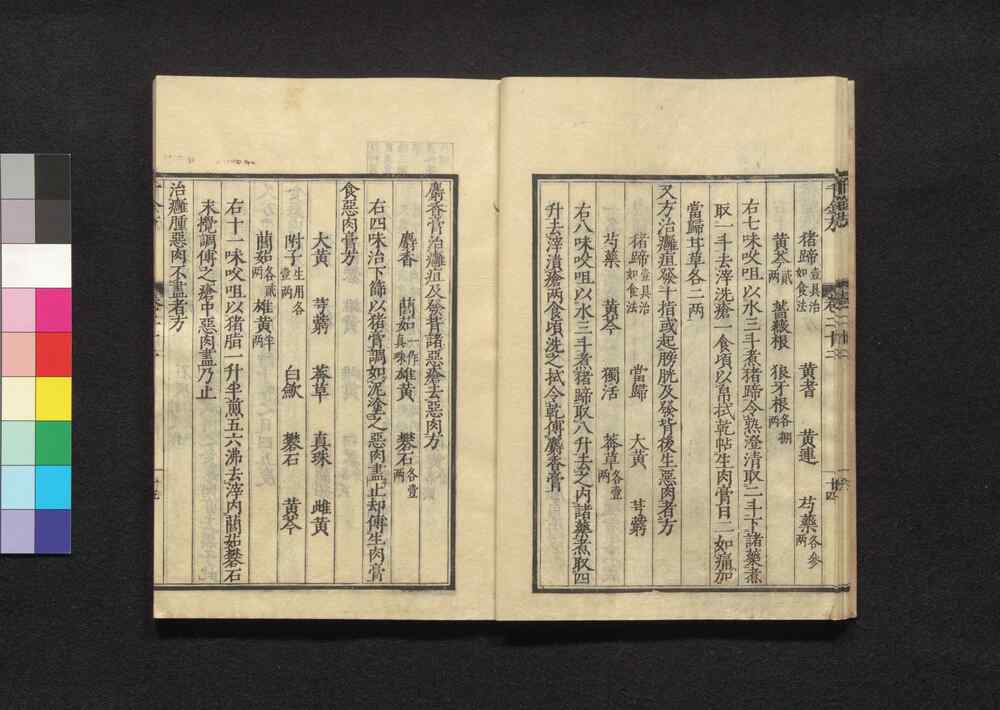 猪蹄壹具治如食法 黃耆 黃連 芍藥各參兩
黃芩貳兩 薔薇根 狼牙根各捌兩
右七味㕮咀以水三斗煮猪蹄令熟澄清取二斗下諸藥煮
取一斗去滓洗瘡一食頃以帛拭乾帖生肉膏日二如痛加
當歸甘草各二兩
又方治癰疽發十指或起膀胱及發背後生惡肉者方
猪蹄壹具治如食法 當歸 大黃 芎藭
芍藥 黃芩 獨活 莽草各壹兩
右八味㕮咀以水三斗煮猪蹄取八升去之内諸藥煮取四
升去滓漬瘡兩食頃洗之拭令乾傅麝香膏
麝香膏治癰疽及發背諸惡瘡去惡肉方
麝香 䕡茹一作真珠 雄黃 礬石各壹兩
右四味治下篩以猪膏調如泥塗之惡肉盡止却傅生肉膏
食惡肉膏方
大黃 芎藭 莽草 真珠 雌黃
附子生用各壹兩 白斂 礬石 黃芩
䕡茹各貳兩 雄黃半兩
右十一味㕮咀以猪脂一升半煎五六沸去滓内䕡茹礬石
末攪調傅之瘡中惡肉盡乃止
治癰腫惡肉不盡者方